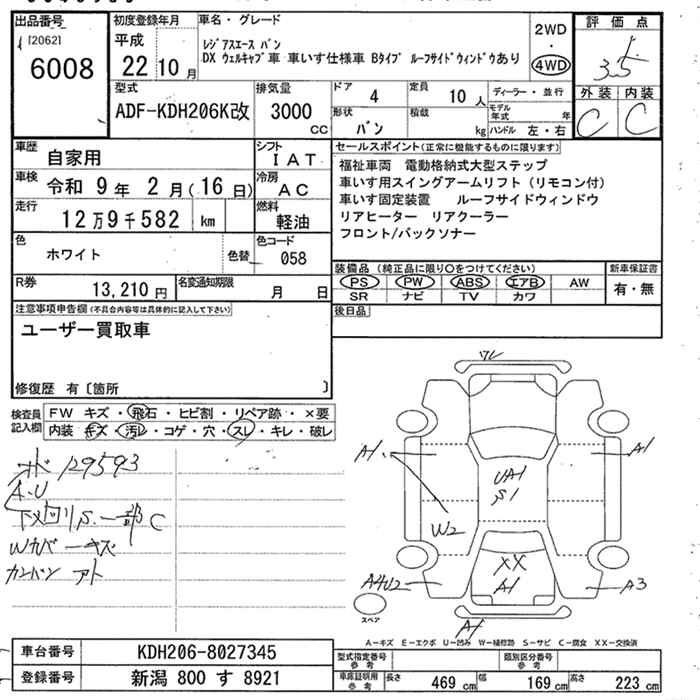 出品番号
[2062]
6008
初度登録年月
平成
22年10月
車名・グレード
レジアスエース バン
DX ウェルキャブ車 車いす仕様車 Bタイプ ルーフサイドウィンドウあり
2WD
・
4WD
評価点
3.5
外装 内装
C C
型式
ADF-KDH206K改
排気量
3000 CC
ドア 4
定員 10人
形状 バン
積載 kg
ディーラー・並行
モデル年式 年
ハンドル 左・右
車歴
自家用
シフト
IAT
車検
令和 9年 2月(16日)
冷房
AC
走行
12万9千582 km
燃料
軽油
色
ホワイト
色替
色コード
058
R券
13,210円
名変通知期限
月 日
セールスポイント(正常に機能するものに限ります)
福祉車両 電動格納式大型ステップ
車いす用スイングアームリフト(リモコン付)
車いす固定装置 ルーフサイドウィンドウ
リアヒーター リアクーラー
フロント/バックソナー
装備品(純正品に限り○をつけてください)
PS PW ABS エアB AW
SR ナビ TV カワ
新車保証書
有・無
後日品
注意事項申告欄(不具合内容等は具体的に記入して下さい)
ユーザー買取車
修復歴 有〔箇所 〕
検査員記入欄
FW キズ・飛石・ヒビ割・リペア跡・×要
内装 キズ・汚レ・コゲ・穴・スレ・キレ・破レ
オド 129593
A.U
下メ回りS.一部C
Wカバーキズ
カンバン アト
ワレ
A1
A1
UA1
S1
W2
XX
A1
A4U2
A3
A1
スペア
A-キズ E-エクボ U-凹み W-補修跡 S-サビ C-腐食 XX-交換済
車台番号
KDH206-8027345
登録番号
新潟 800 す 8921
型式指定番号
参考
類別区分番号
参考
車庫証明用
参考
長さ 469cm 幅 169cm 高さ 223cm